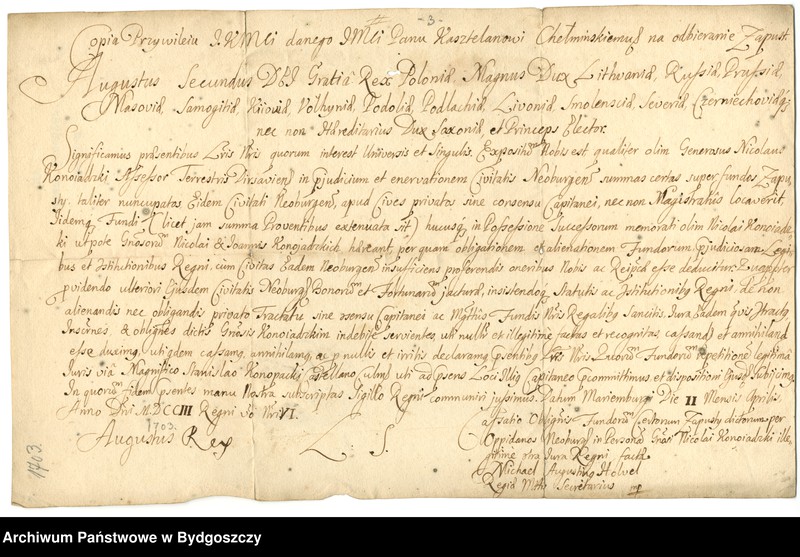 -3-
Copia Przywileiu J.K.Mći danego JMći Panu Kasztelanowi Chełminskiemu na odbieranie Zapust.
Augustus Secundus D. Gratia Rex Poloniæ, Magnus Dux Lithvaniæ, Russiæ, Prussiæ,
Masoviæ, Samogitiæ, Kijoviæ, Volhyniæ, Podoliæ, Podlachiæ, Livoniæ, Smolensciæ, Severiæ, Czerniechoviæq;
nec non Hæreditarius Dux Saxoniæ, et Princeps Elector.
Significamus præsentibus Lris Nris quorum interest Universis et Singulis. Nobis est, qualiter olim Generosus Nicolaus
Konoiadzki Assessor Terrestris in præjudicium et enervationem Civitatis Neoburgen summas certas super fundos Zapu-
sty taliter nuncupatas Eidem Civitati Neoburgen, apud Cives privatos sine consensu Capitanei, nec non Magistratus locaverit,
Iidemq Fundi (licet jam summa Proventibus extenuata sit) hucusq in Possessione Successorum memorati olim Nicolai Konoiadz-
ki utpote Nicolai & Joannis Konojadzkich hæreant, per quam obligationem et alienationem Fundorum præjudiciosam Legi-
bus et Institutionibus Regni, cum Civitas Eadem Neoburgen insufficiens proferendis oneribus Nobis ac Reipcæ esse deducitur. Quapropter
providendo ulteriori Ejusdem Civitatis Neoburg Bonorum et Fortunarum jacturæ, insistendoq Statutis ac Institutionibq Regni, de non
alienandis nec obligandis privato Tractatu sine assensu Capitanei ac Mgttus Fundis Nris Regalibq Sancitis, Jura Eadem
et dictis Konoiadzkim indebite servientes, uti nulle et illegitime factas et recognitas, cassand et annihiland
esse duximq, utiqdem cassamq, annihilamq, ac p nullis et irritis declaramq psentibq Lris Nris. Quorum Fundorum repetitione legitima
Juris via Magnifico Stanislao Konopacki Castellano Culm uti ad psens Loci Illiq Capitaneo et dispositioni
In quorum fidem psentes manu Nostra subscriptas Sigillo Regni communiri jussimus. Datum Marienburgi Die II Mensis Aprilis
Anno Dni M.DCCIII Regni vo Nri VI.
1703.
Augustus Rex L. S.
Cassatio Oblignis Fundorum Certorum Zapusty dictorum per
Oppidanos Neoburg in Persona Gnosi Nicolai Konoiadzki ille-
gitime ctra Jura Regni facta
Michael Augustinq Holvel
Regiæ Mttis Secretarius mp
1703
Archiwum Państwowe w Bydgoszczy